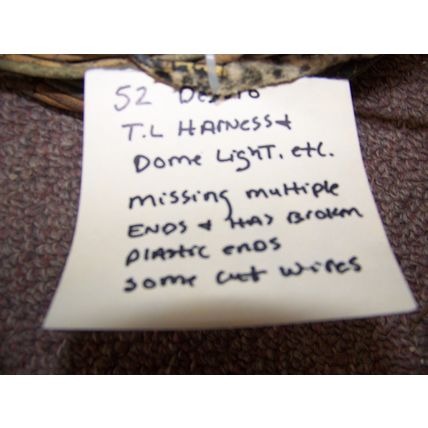 52 Desoto
T.L HARNESS &
Dome Light, etc.
missing multiple
ENDS & HAS BROKEN
plastic ends
some cut wires